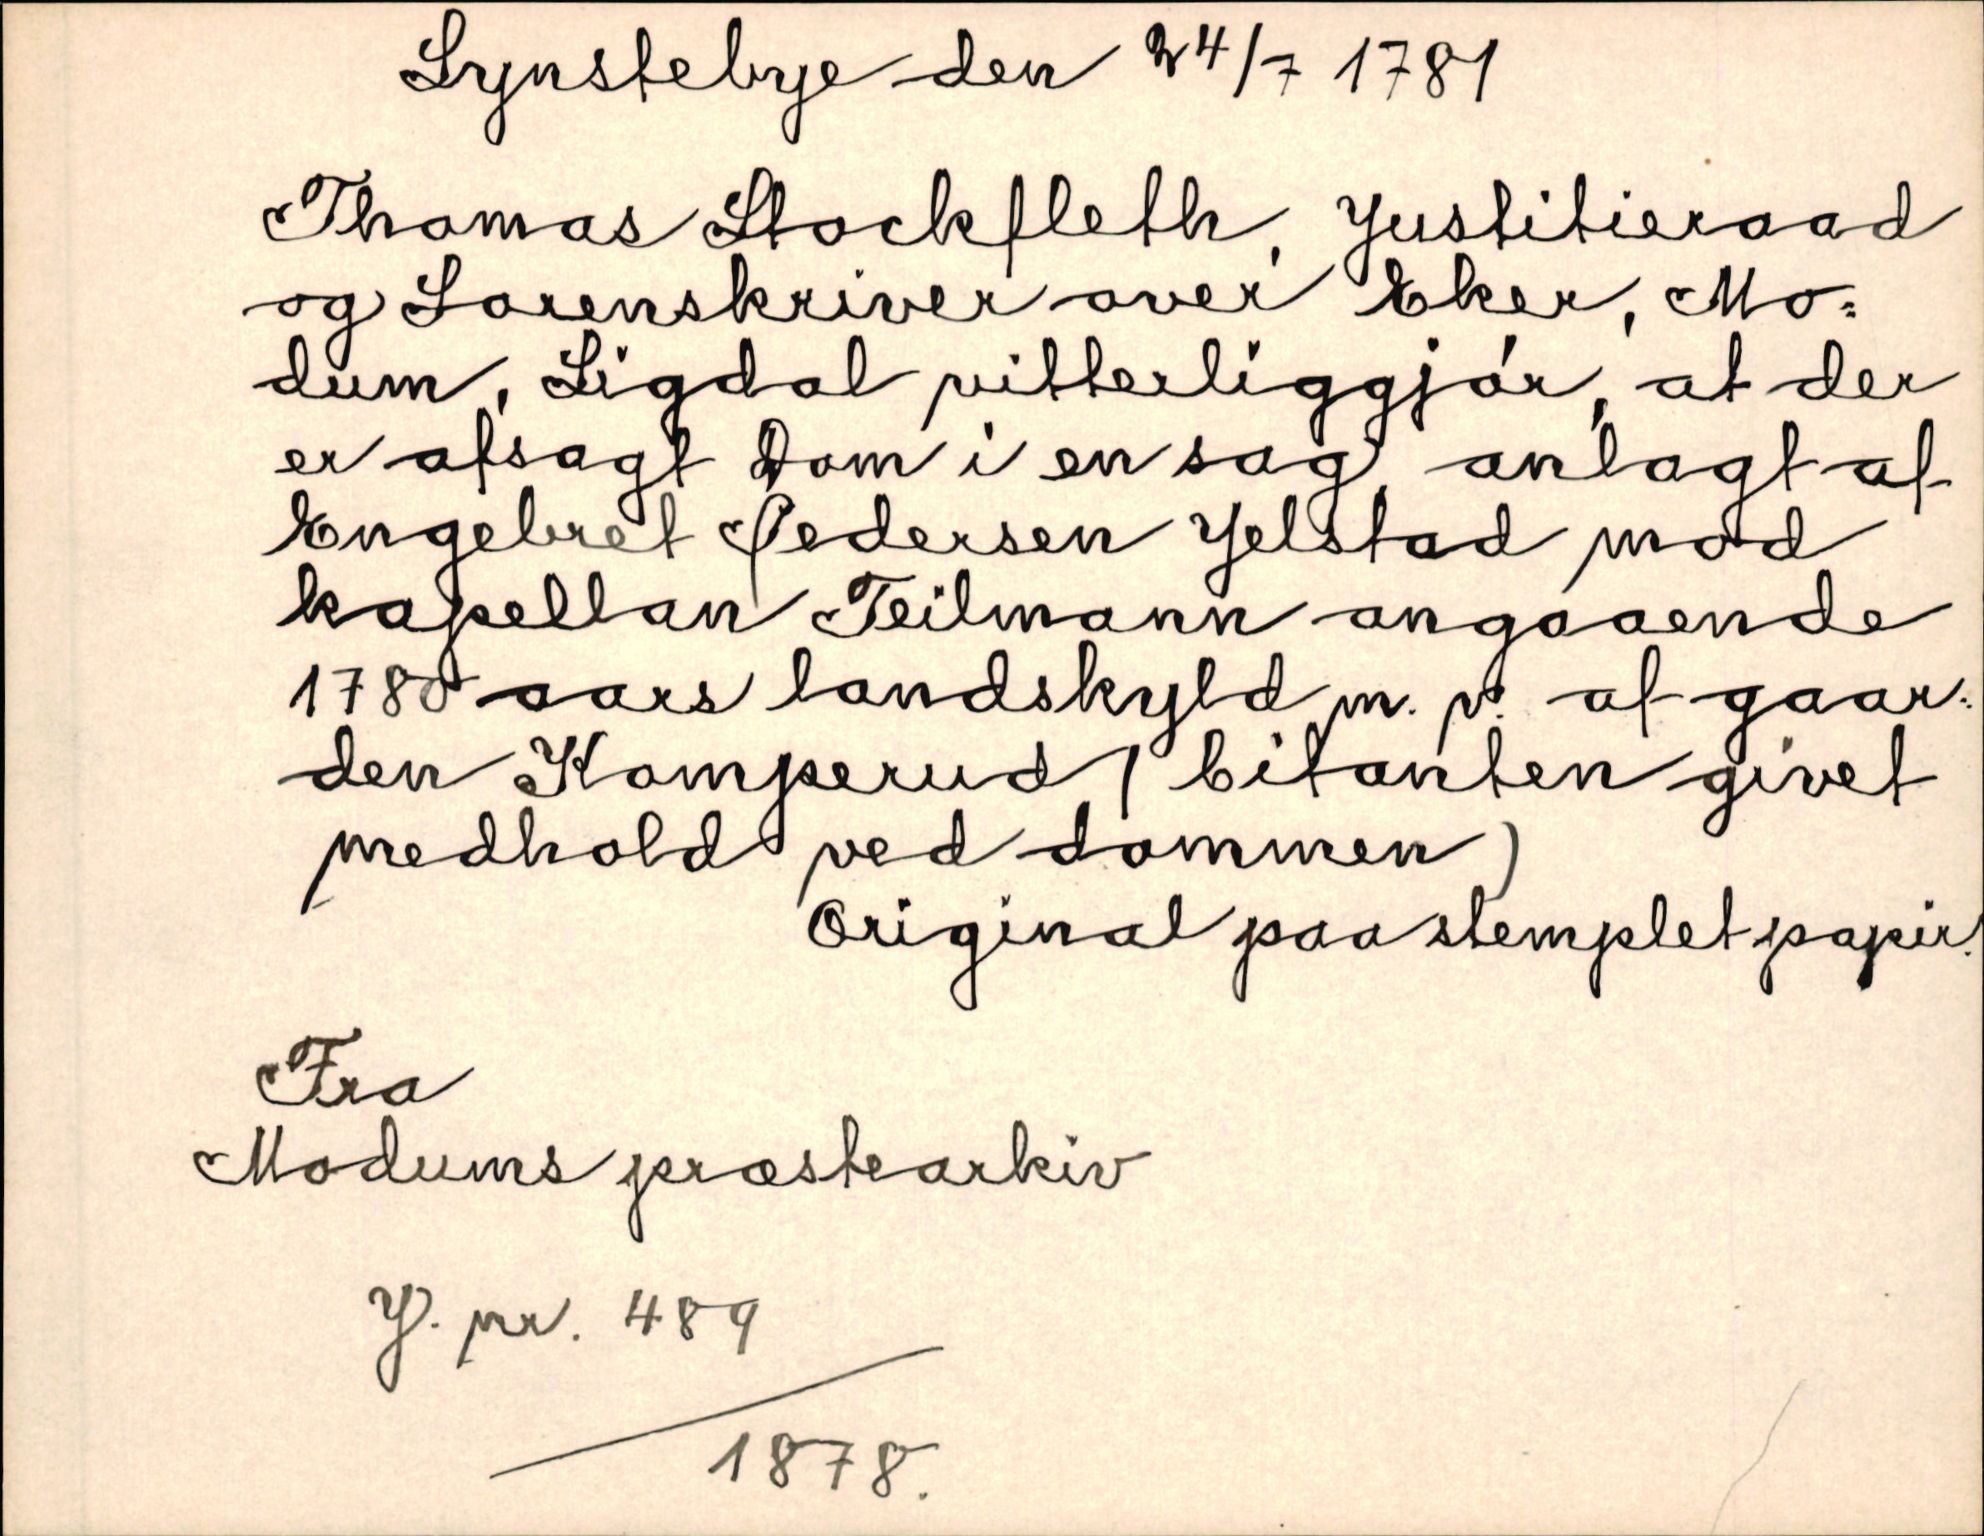 Synstebye den 24/7 1781
Thomas Stockfleth, Justitieraad
og Sorenskriver over Eker, Mo=
dum, Sigdal vitterliggjór, at der
er afsagt Dom i en sag, anlagt af
Engebret Pedersen Jelstad mod
kapellan Teilmann angaaende
1780 aars landskyld m. v. af gaar=
den Komperud (Citanten givet
medhold ved dommen)
Original paa stemplet papir.
Fra
Modums præstearkiv
J. nr. 489
1878.